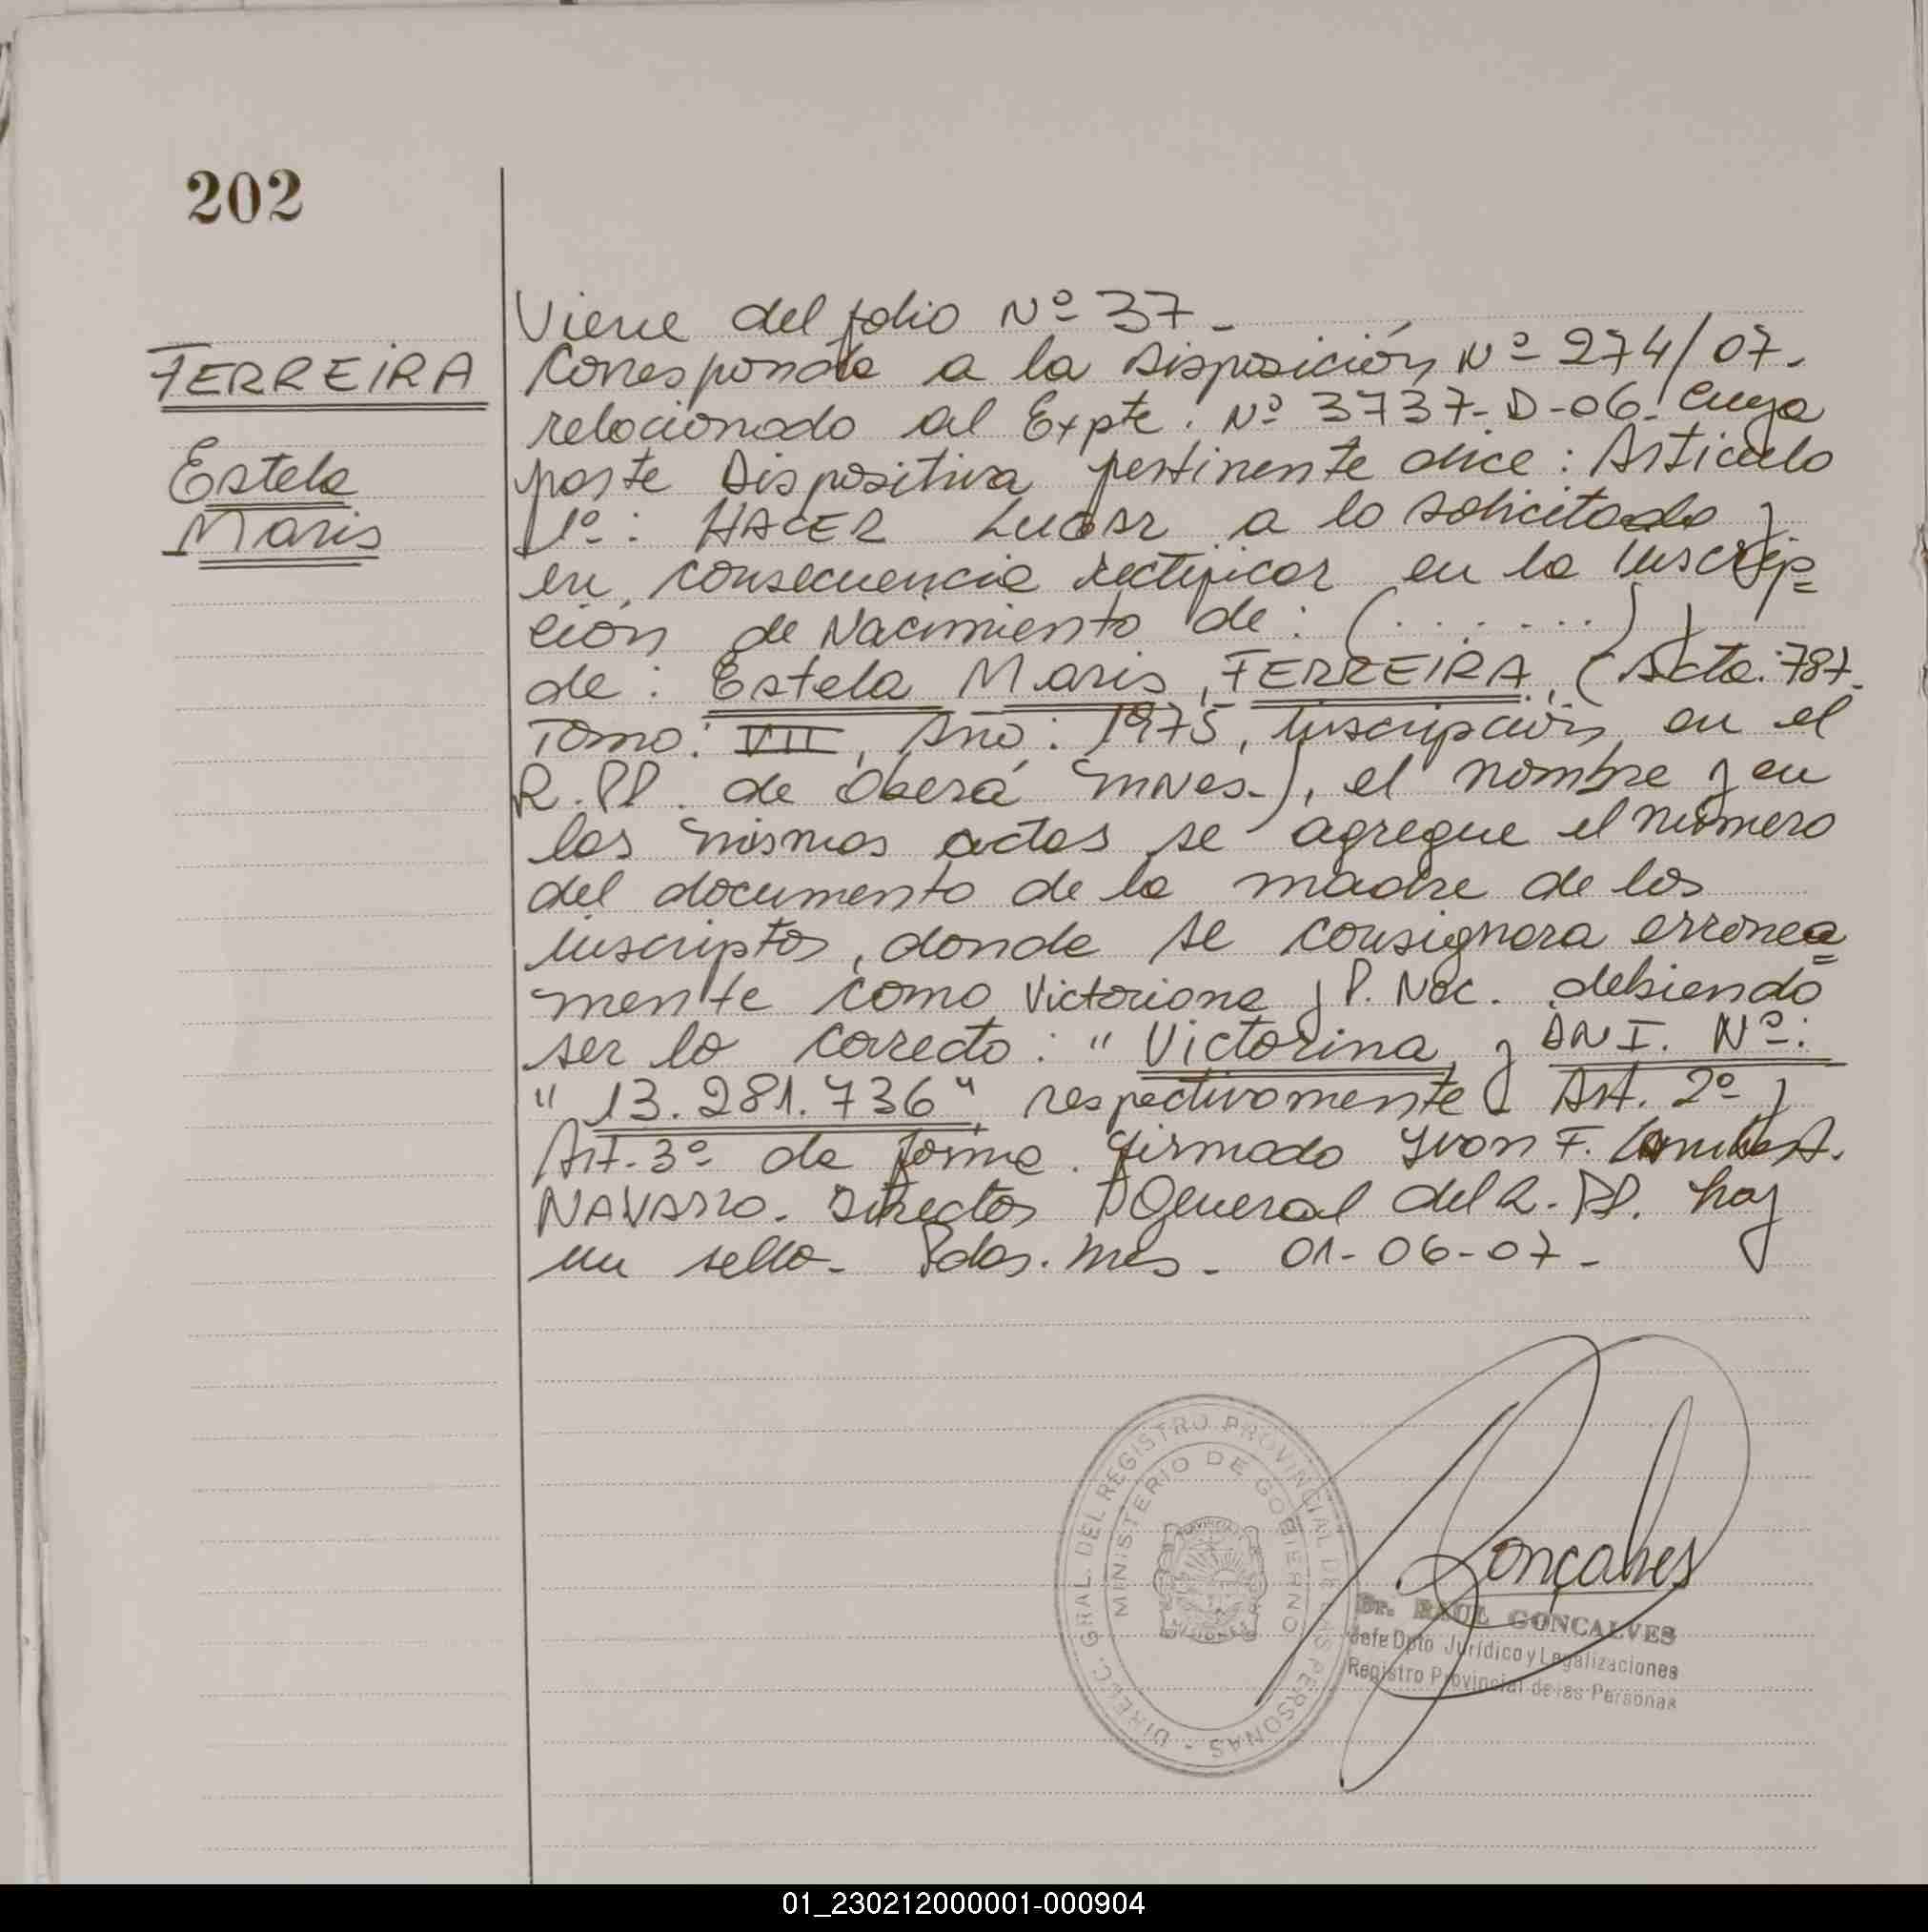 202
FERREIRA
Estela
Maris
Viene del folio Nº 37-
Corresponde a la Disposición Nº 274/07.
relacionado al Expte. Nº 3737-D-06. Cuya
parte Dispositiva pertinente dice: Articulo
1º: HACER LUGAR a lo solicitado y
en consecuencia rectificar en la Inscrip=
ción de Nacimiento de: (.......) y
de: Estela Maris, FERREIRA, (Acta: 787.
Tomo: VII, Año: 1975, Inscripción en el
R.PP. de Oberá Mnes.), el nombre y en
las mismas actas se agregue el número
del documento de la madre de los
inscriptos, donde se consignara erronea=
mente como Victoriana y P. Nac. debiendo
ser lo correcto: "Victorina, y DNI. Nº:
"13.281.736", respectivamente Art. 2º y
Art. 3º de forma. Firmado Ivon F.
NAVARRO. Director General del R.PP. hay
un sello. Pdas. Mnes. 01-06-07-
DIREC. GRAL. DEL REGISTRO PROVINCIAL DE LAS PERSONAS -
MINISTERIO DE GOBIERNO
Gonçalves
Dr. RAUL GONCALVES
Jefe Dpto Jurídico y Legalizaciones
Registro Provincial de las Personas
01_230212000001-000904